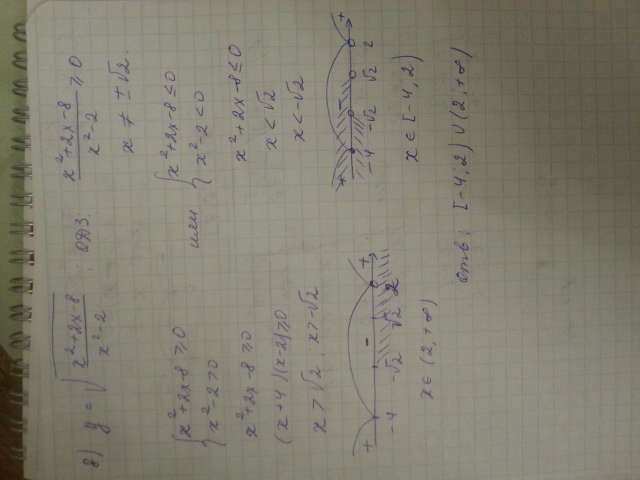 8) y = √((x²+2x-8)/(x²-2)) ; ОДЗ (x²+2x-8)/(x²-2) ≥ 0
x ≠ ±√2.
{x²+2x-8 ≥ 0 или {x²+2x-8 ≤ 0
{x²-2 > 0 {x²-2 < 0
x²+2x-8 ≥ 0 x²+2x-8 ≤ 0
(x+4)(x-2) ≥ 0 x < √2
x > √2 ; x > -√2 x < -√2
+ - + + - +
-4 -√2 √2 2 -4 -√2 √2 2
x ∈ (2, +∞) x ∈ [-4, 2)
отв: [-4, 2) ∪ (2, +∞)